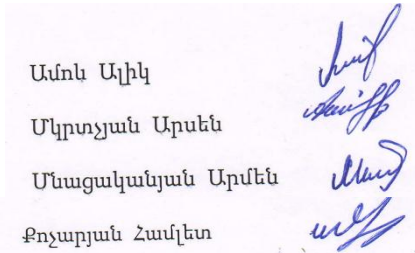 Ամոն Ալիկ
Մկրտչյան Արսեն
Մնացականյան Արմեն
Քոչարյան Համլետ